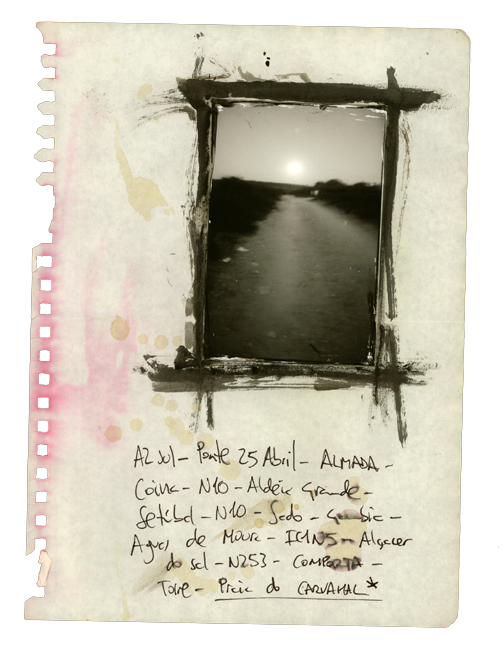 A2 sul - Ponte 25 Abril - ALMADA -
Coina - N10 - Aldeia Grande -
Setubal - N10 - Sado - Gambia -
Aguas de Moura - IC1N5 - Alcacer
do sal - N253 - COMPORTA -
Torre - Praia do CARVALHAL*